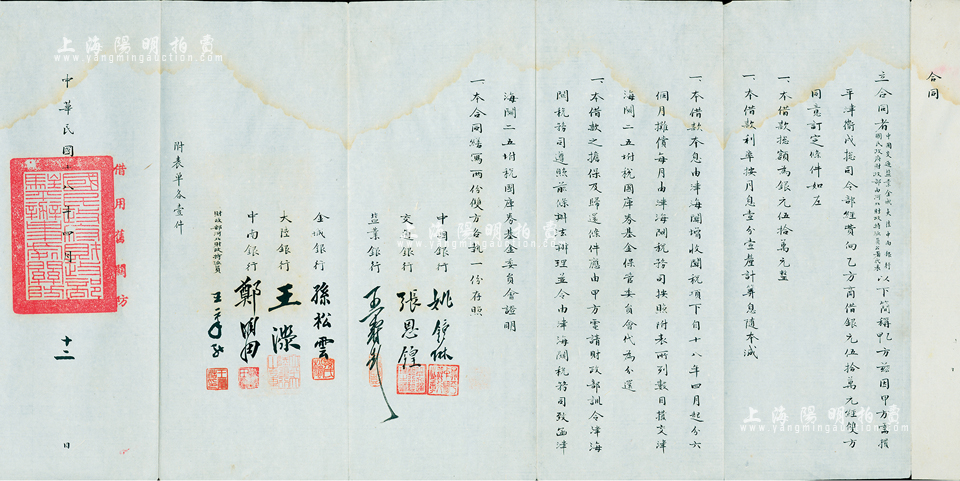 合同
立合同者國民政府財政部河北財政特派員公署代表中國交通鹽業金城大陸中南銀行以下簡稱甲乙方茲因甲方墊撥
平津衛戍總司令部經費向乙方商借銀元伍拾萬元經雙方
同意訂定條件如左
一、本借款總額為銀元伍拾萬元整
一、本借款利率按月息壹分壹釐計算息隨本減
一、本借款本息由津海關增收關稅項下自十八年四月起分六
個月攤償每月由津海關稅務司按照附表所列數目撥交津
海關二五附稅國庫券基金保管委員會代為分還
一、本借款之擔保及歸還條件應由甲方電請財政部訓令津海
關稅務司遵照前條辦法辦理並令由津海關稅務司致函津
海關二五附稅國庫券基金委員會證明
一、本合同繕寫兩份雙方各執一份存照
中國銀行 姚
交通銀行 張恩鍠
鹽業銀行 王
金城銀行 孫松雲
大陸銀行 王
中南銀行 鄭
財政部河北財政特派員 王
附表單各壹件
借用舊關防
中華民國十八年四月十二日
上海陽明拍賣
www.yangmingauction.com
上海陽明拍賣
www.yangmingauction.com
上海陽明拍賣
www.yangmingauction.com
上海陽明拍賣
www.yangmingauction.com